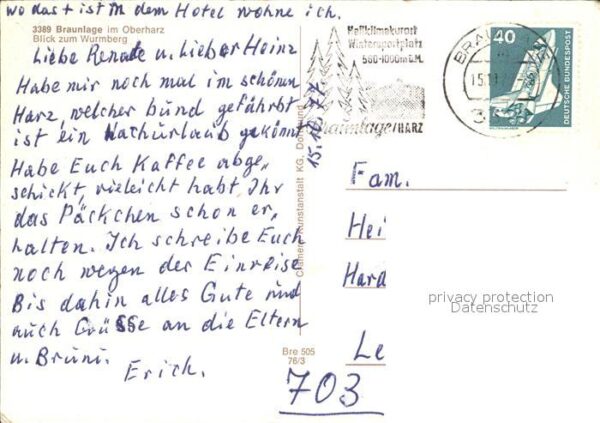 wo das + ist in dem Hotel wohne ich.
3389 Braunlage im Oberharz
Blick zum Wurmberg
Liebe Renate u. Lieber Heinz
Habe mir noch mal im schönen
Harz, welcher bund gefährbt
ist ein Nachurlaub gekönnt
Habe Euch Kaffee abge,
schickt, vieleicht habt Ihr
das Päckchen schon er,
halten. Ich schreibe Euch
noch wegen der Einreise
Bis dahin alles Gute und
auch Grüsse an die Eltern
u. Bruni.
Erich.
15.10.77
Cramers Kunstanstalt KG, Dortmund
Bre 505
76/3
Heilklimakurort
Wintersportplatz
560-1000m ü.M.
Braunlage/HARZ
40
DEUTSCHE BUNDESPOST
Fam.
Hei
Hard
Le
703
privacy protection
Datenschutz